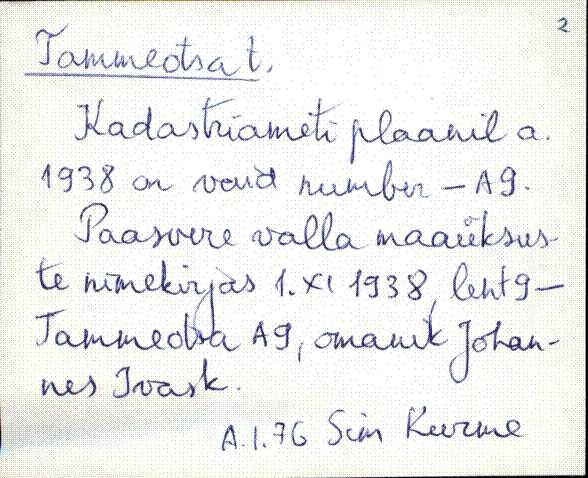 2
Tammeotsa t.
Kadastriameti plaanil a.
1938 on vaid number – A9.
Paasvere valla maaüksus-
te nimekirjas 1.XI 1938, leht 9 –
Tammeotsa A9, omanik Johan-
nes Ivask.
A.I.76 Siim Kurme